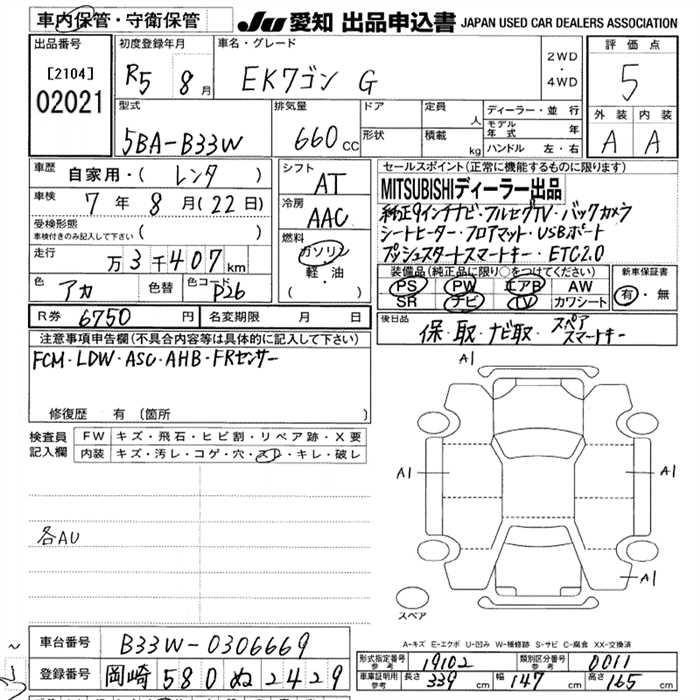 車内保管・守衛保管 JU 愛知 出品申込書 JAPAN USED CAR DEALERS ASSOCIATION
出品番号 [2104] 02021
初度登録年月 R5 8月
車名・グレード EKワゴン G 2WD・4WD
評価点 5
外装 A 内装 A
型式 5BA-B33W
排気量 660cc
ドア 形状
定員 人 積載 kg
ディーラー・並行
モデル年式 年
ハンドル 左・右
車歴 自家用・(レンタ)
車検 7年8月(22日)
受検形態 車検付きのみ記入して下さい( )
走行 万3千407km
色 アカ 色替 色コード P26
シフト AT
冷房 AAC
燃料 ガソリン 軽・油 ( )
セールスポイント(正常に機能するものに限ります)
MITSUBISHIディーラー出品
純正9インチナビ・フルセグTV・バックカメラ
シートヒーター・フロアマット・USBポート
プッシュスタートスマートキー・ETC2.0
装備品(純正品に限り○をつけてください)
PS PW エアB AW
SR ナビ TV カワシート
新車保証書 有・無
R券 6750円 名変期限 月 日
後日品 保・取・ナビ取・スペアスマートキー
注意事項申告欄(不具合内容等は具体的に記入して下さい)
FCM・LDW・ASC・AHB・FRセンサー
修復歴 有(箇所 )
検査員記入欄
FW キズ・飛石・ヒビ割・リペア跡・X要
内装 キズ・汚レ・コゲ・穴・スレ・キレ・破レ
各AU
A1
A1
A1
A1
スペア
A-キズ E-エクボ U-凹み W-補修跡 S-サビ C-腐食 XX-交換済
車台番号 B33W-0306669
登録番号 岡崎 580 ぬ 2429
形式指定番号参考 19102 類別区分番号参考 0011
車庫証明用参考 長さ 339cm 幅 147cm 高さ 165cm